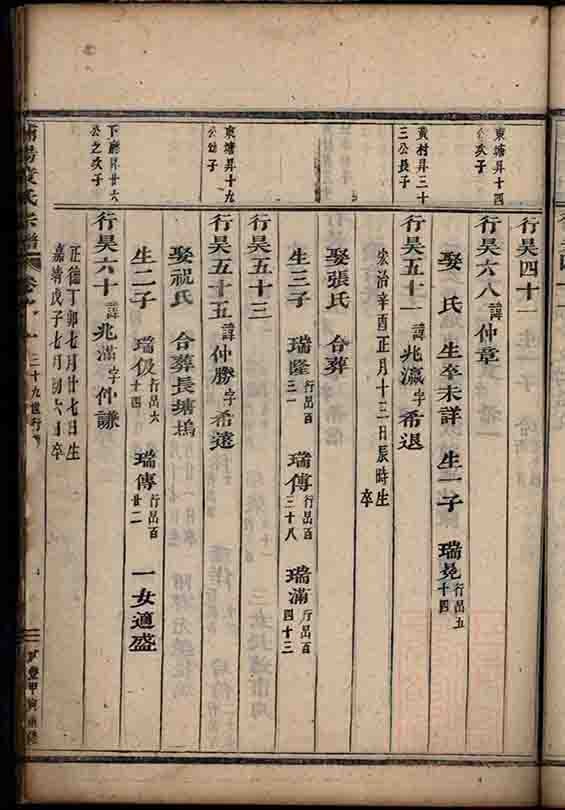 行昊四十一
東塘昇十四
公次子
行昊六八諱仲章
娶 氏 生卒未詳 生一子 瑞晃行昌五十四
黃村昇三十
三公長子
行昊五十一諱兆瀛字希退
宏治辛酉正月十三日辰時生
卒
娶張氏 合葬
生三子 瑞隆行昌百三一 瑞傳行昌百三十八 瑞滿行昌百四十三
行昊五十三
東塘昇十九
公幼子
行昊五十五諱仲勝字希遠
娶祝氏 合葬長塘塢
生二子 瑞伋行昌六十四 瑞傳行昌百廿二 一女適盛
下廳昇廿六
公之次子
行昊六十諱兆滿字仲謙
正德丁卯七月廿七日生
嘉靖戊子七月初六日卒
氏宗譜 卷 三十九世行
豐甲